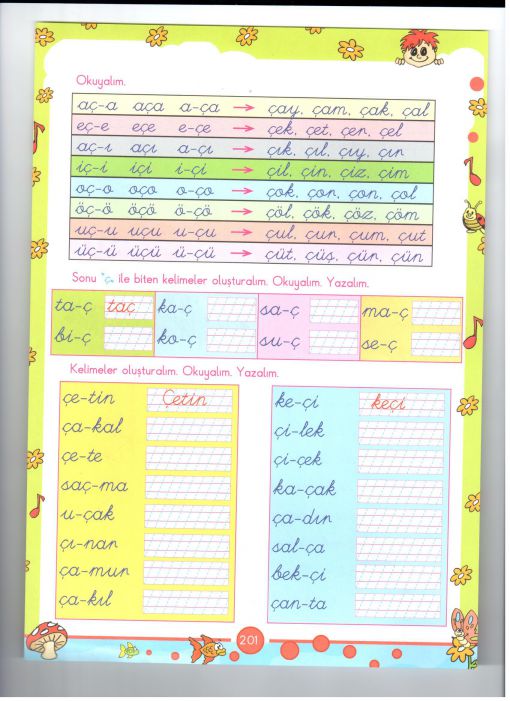 Okuyalım.
aç-a aça a-ça → çay, çam, çak, çal
eç-e eçe e-çe → çek, çet, çer, çel
aç-ı açı a-çı → çık, çıl, çıy, çır
iç-i içi i-çi → çil, çin, çiz, çim
oç-o oço o-ço → çok, çor, çon, çol
öç-ö öçö ö-çö → çöl, çök, çöz, çöm
uç-u uçu u-çu → çul, çur, çum, çut
üç-ü üçü ü-çü → çüt, çüş, çür, çün
Sonu "ç" ile biten kelimeler oluşturalım. Okuyalım. Yazalım.
ta-ç taç ka-ç sa-ç ma-ç
bi-ç ko-ç su-ç se-ç
Kelimeler oluşturalım. Okuyalım. Yazalım.
çe-tin Çetin
ça-kal
çe-te
saç-ma
u-çak
çı-nar
ça-mur
ça-kıl
ke-çi keçi
çi-lek
çi-çek
ka-çak
ça-dır
sal-ça
bek-çi
çan-ta
201